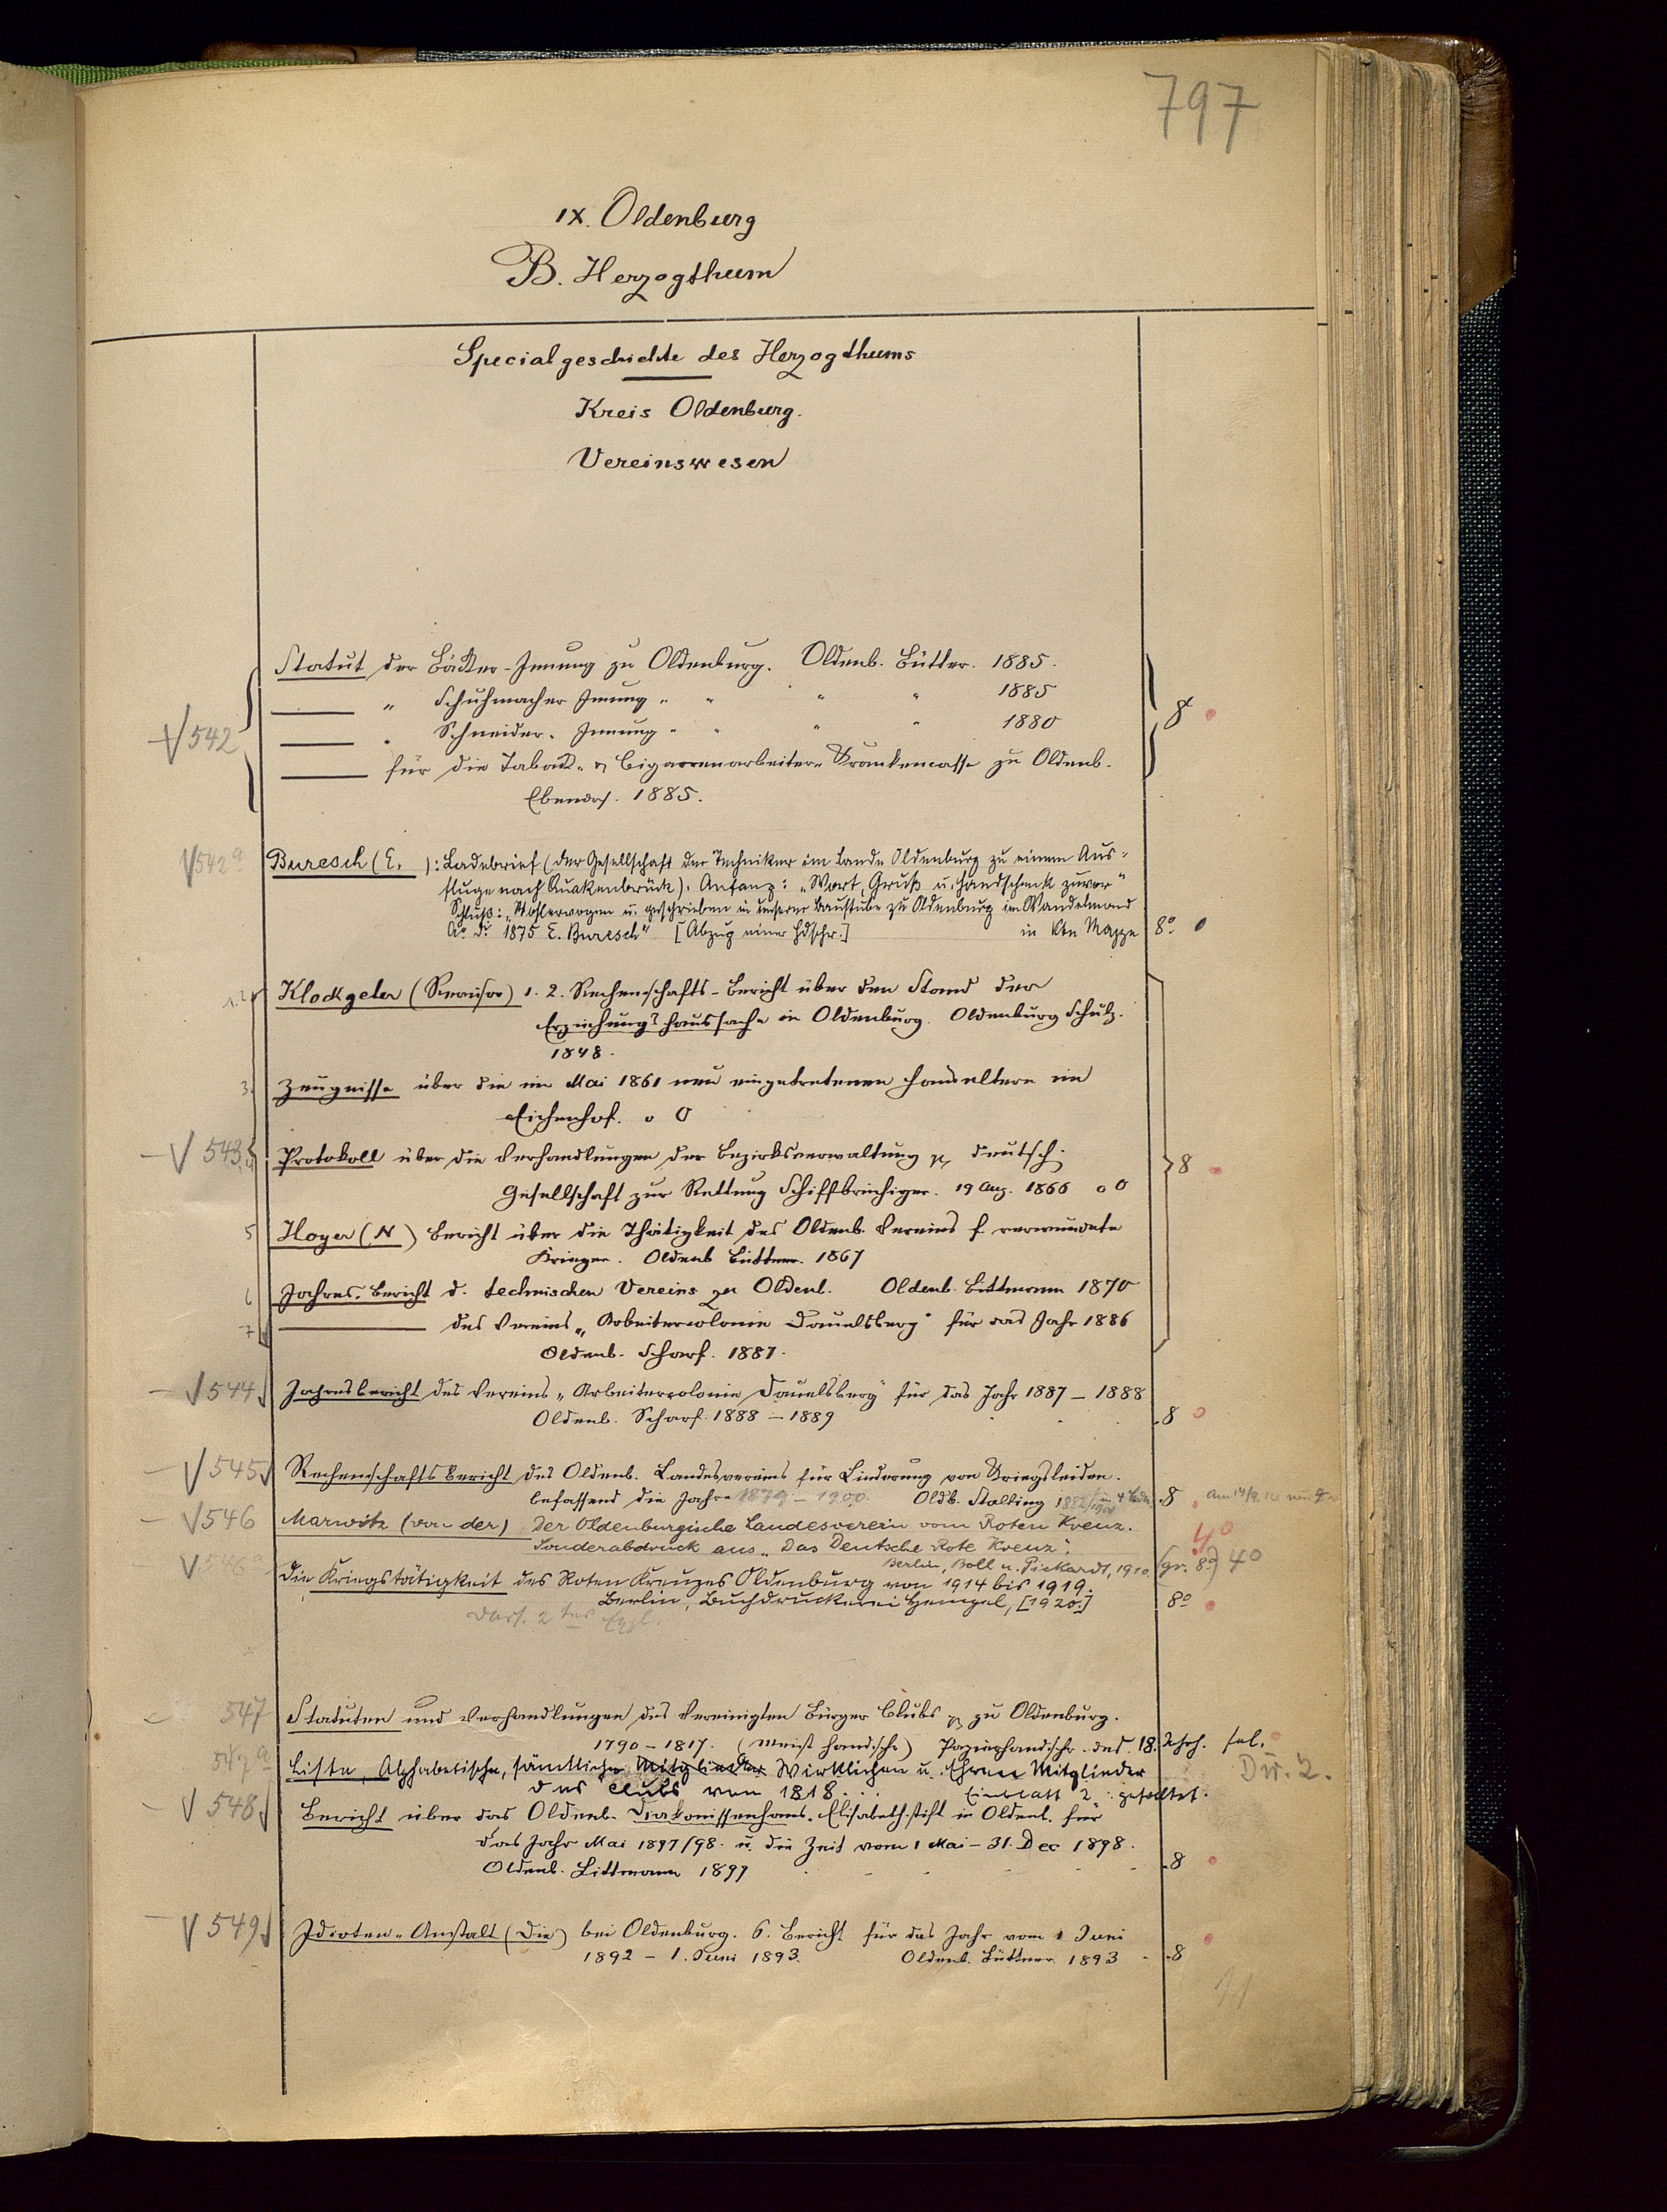 797
IX. Oldenburg
B. Herzogthum
Specialgeschichte des Herzogthums
Kreis Oldenburg.
Vereinswesen
Statut der Bäcker-Innung zu Oldenburg. Oldenb. Büttner. 1885.
" Schuhmacher Innung " " " " 1885
V 542 " Schneider-Innung " " " " 1880 8
für die Taback- & Cigarrenarbeiter-Krankencasse zu Oldenb.
Ebendas. 1885.
V 542a Buresch (E. ): Ladebrief (der Gesellschaft der Techniker im Lande Oldenburg zu einem Aus-
fluge nach Quakenbrück). Anfang: "Wort, Gruß u. Handschenk zuvor"
Schluß: "Wohlerwogen u. geschrieben in unserer Baustube zu Oldenburg im Wandelmond
Ao. d. 1875 E. Buresch" [Abzug einer Hdschr.] in Mappe 8o
1.2 Klockgeter (Revisor) 1. 2. Rechenschafts-Bericht über den Stand der
Erziehungshaussache in Oldenburg. Oldenburg Schulz.
1848.
3. Zeugnisse über die im Mai 1861 neu eingetretenen Hauseltern im
Eichenhof. o O
V 543 Protokoll über die Verhandlungen der Bezirksverwaltung deutsch.
Gesellschaft zur Rettung Schiffbrüchiger. 19 Aug. 1866 o O 8
5 Hoyer (N) Bericht über die Thätigkeit des Oldenb. Vereins f. verwundete
Krieger. Oldenb Büttner. 1867
6 Jahres-Bericht d. technischen Vereins zu Oldenb. Oldenb. Littmann 1870
7 des Vereins "Arbeitercolonie Dauelsberg" für das Jahr 1886
Oldenb. Scharf. 1887.
V 544 Jahresbericht des Vereins "Arbeitercolonie Dauelsberg" für das Jahr 1887 – 1888
Oldenb. Scharf. 1888 – 1889 8
V 545 Rechenschaftsbericht des Oldenb. Landesvereins für Linderung von Kriegsleiden.
befassend die Jahre 1879 – 1900. Oldb. Stalling 8
V 546 Marwitz (von der) Der Oldenburgische Landesverein vom Roten Kreuz.
Sonderabdruck aus "Das Deutsche Rote Kreuz". 4o
Berlin, Boll u. Pickardt, 1910. (gr. 8o) 4o
V 546a Die Kriegstätigkeit des Roten Kreuzes Oldenburg von 1914 bis 1919.
Berlin, Buchdruckerei Hempel, [1920.] 8o
Dass. 2tes Expl.
547 Statuten und Verhandlungen des Vereinigten Bürger Clubs zu Oldenburg.
1790 – 1817. (meist handschr) Papierhandschr. des 18. Jhrh. fol.
547a Liste, Alphabetische, sämtlicher Mitglieder Wirklichen u. Ehren Mitglieder
des Clubs von 1818. Einblatt 2o gefaltet.
V 548 Bericht über das Oldenb. Diakonissenhaus-Elisabethstift in Oldenb. für
das Jahr Mai 1897/98. u. die Zeit vom 1 Mai – 31. Dec 1898.
Oldenb. Littmann 1899 8
V 549 Idioten-Anstalt (Die) bei Oldenburg. 6. Bericht für das Jahr vom 1 Juni
1892 – 1. Juni 1893. Oldenb. Büttner. 1893 8
11